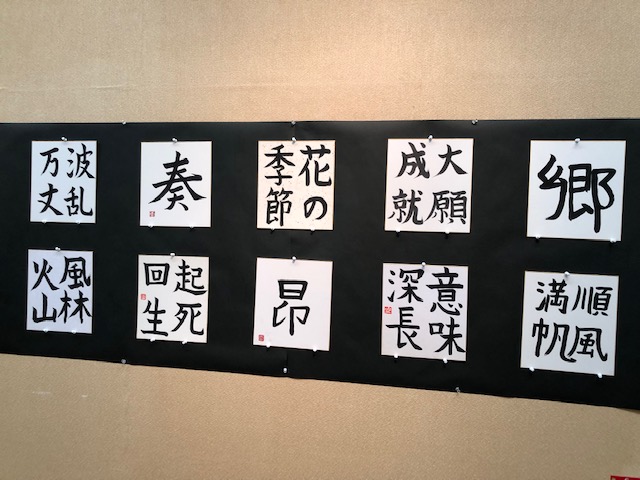 郷
大願
成就
花の
季節
奏
波乱
万丈
順風
満帆
意味
深長
昴
起死
回生
風林
火山